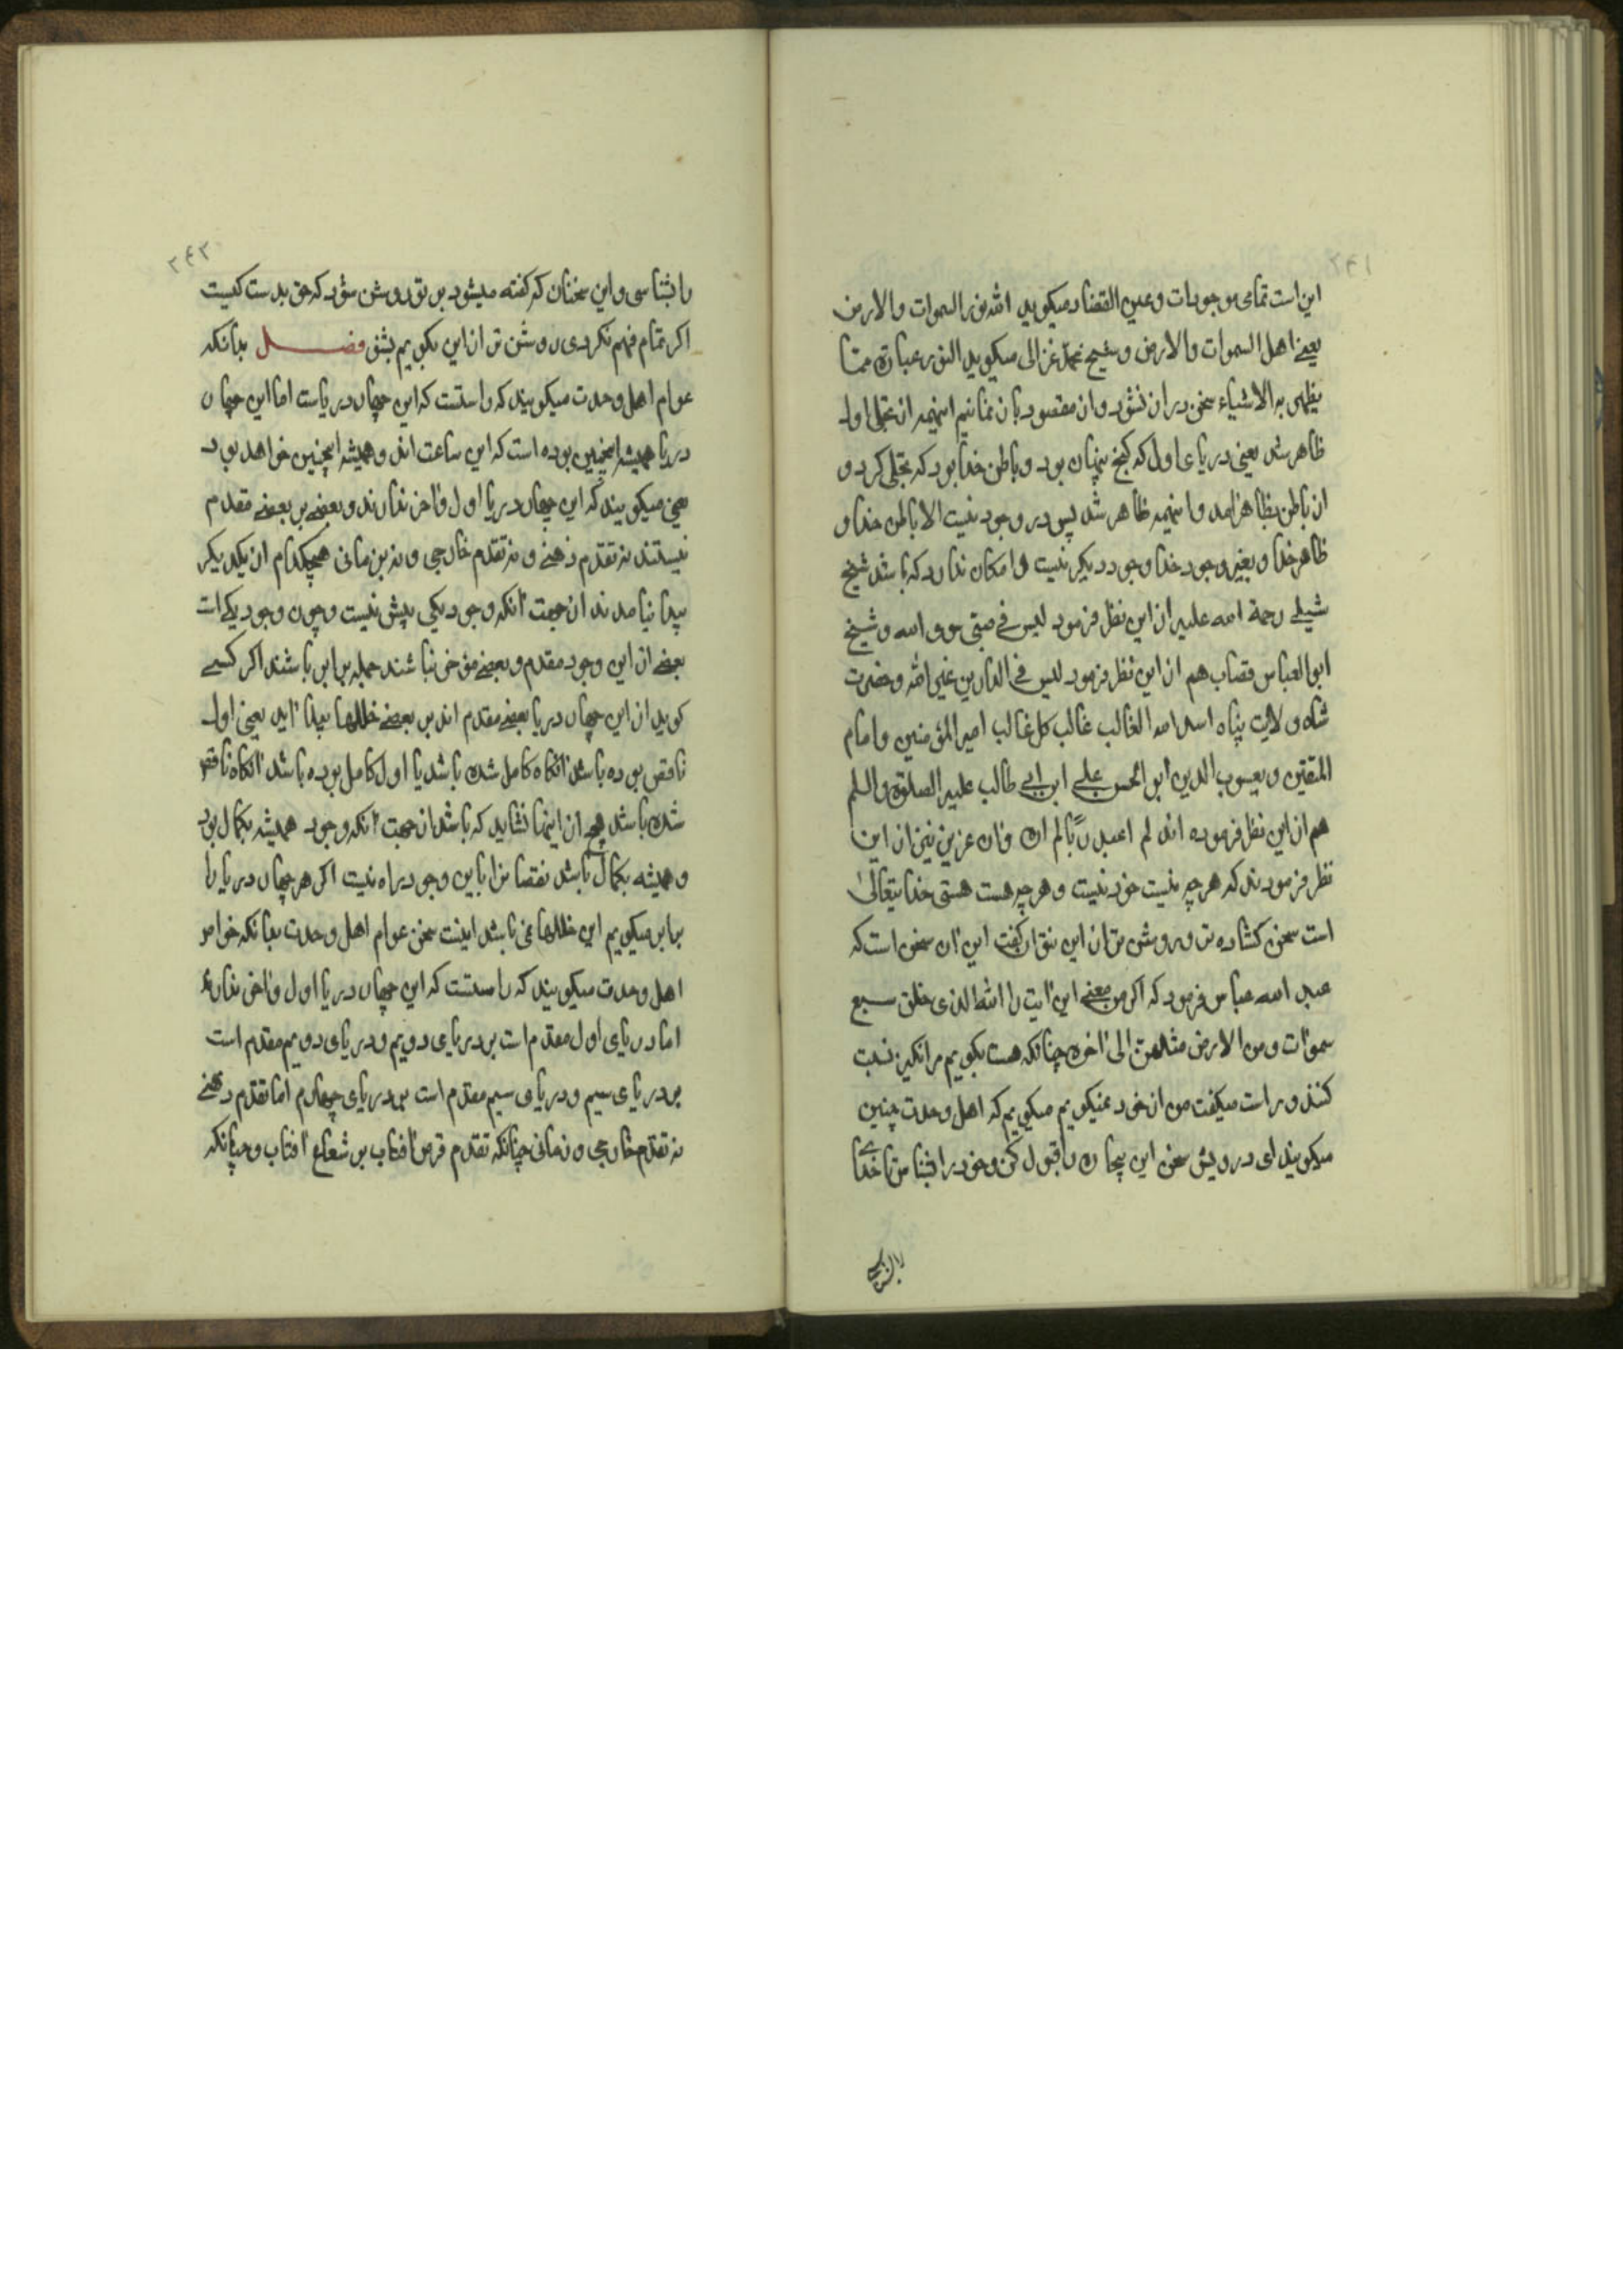 ۲۴۱
این است تمامی موجودات وعین القضاة میکوید الله نور السموات والارض
یعنی اهل السموات والارض وشیخ محمد غزالی میکوید النور عبارة عما
یظهر به الاشیاء سخن دراز نشود وازن مقصود باز نمانیم اینهمه از تجلی اول
ظاهر شد یعنی دریای اول که کنج پنهان بود وباطن خدا بود که تجلی کرد و
از باطن بظاهر آمد واینهمه ظاهر شد پس در وجود نیست الا باطن خدا و
ظاهر خدا وبغیر وجود خدا وجود دیکر نیست وامکان ندارد که باشد شیخ
شبلی رحمة الله علیه از این نظر فرمود لیس فی جبتی سوی الله وشیخ
ابوالعباس قصاب هم از این نظر فرمود لیس فی الدارین غیر الله وحضرت
شاه ولایت پناه اسد الله الغالب غالب کل غالب امیر المؤمنین وامام
المتقین ویعسوب الدین ابو الحسن علی ابن ابی طالب علیه الصلوة والسلم
هم از این نظر فرموده اند لم اعبد ربّا لم اره وان عزیز نیز از این
نظر فرمودند که هر چه نیست خود نیست وهر چه هست هستی خدایتعالی
است سخن کشاده تر وروشن تر از این نتوان کفت این آن سخن است که
عبد الله عباس فرمود که اکر من معنی این آیت را الله الذی خلق سبع
سموات ومن الارض مثلهن الی آخره چنانکه هست بکویم مرا تکفیر نسبت
کنند وراست میکفت من از خود نمیکویم میکویم که اهل وحدت چنین
میکویند ای درویش سخن این بیچاره را قبول کن وخود را بشناس تا خدای
را بشناسی
۲۴۲
را بشناسی واین سخنان که کفته میشود بر تو روشن شود که حق بدست کیست
اکر تمام فهم نکردی روشن تر از این بکویم بشنو فصل بدانکه
عوام اهل وحدت میکویند که راستست که این چهار دریاست اما این چهار
دریا همیشه اینچنین بوده است که این ساعت اند وهمیشه اینچنین خواهد بود
یعنی میکویند که این چهار دریا اول وآخر ندارند وبعضی بر بعضی مقدم
نیستند نه تقدم ذهنی ونه تقدم خارجی ونه زمانی هیچکدام از یکدیکر
پیدا نیامدند از جهت آنکه وجود یکی بیش نیست وچون وجود یکی است
بعضی از این وجود مقدم وبعضی مؤخر نباشند جمله برابر باشند اکر کسی
کوید از این چهار دریا بعضی مقدم اند بر بعضی خللها پیدا آید یعنی اول
ناقص بوده باشد آنکاه کامل شده باشد یا اول کامل بوده باشد آنکاه ناقص
شده باشد هیچ از اینها نشاید که باشد از جهت آنکه وجود همیشه بکمال بود
وهمیشه بکمال باشد نقصان را باین وجود راه نیست اکر هر چهار دریا را
برابر میکویم این خللها نمی باشد اینست سخن عوام اهل وحدت بدانکه خواص
اهل وحدت میکویند که راستست که این چهار دریا اول وآخر ندارد
اما دریای اول مقدم است بر دریای دویم ودریای دویم مقدم است
بر دریای سیم ودریای سیم مقدم است بر دریای چهارم اما تقدم ذهنی
نه تقدم خارجی وزمانی چنانکه تقدم قرص آفتاب بر شعاع آفتاب وچنانکه